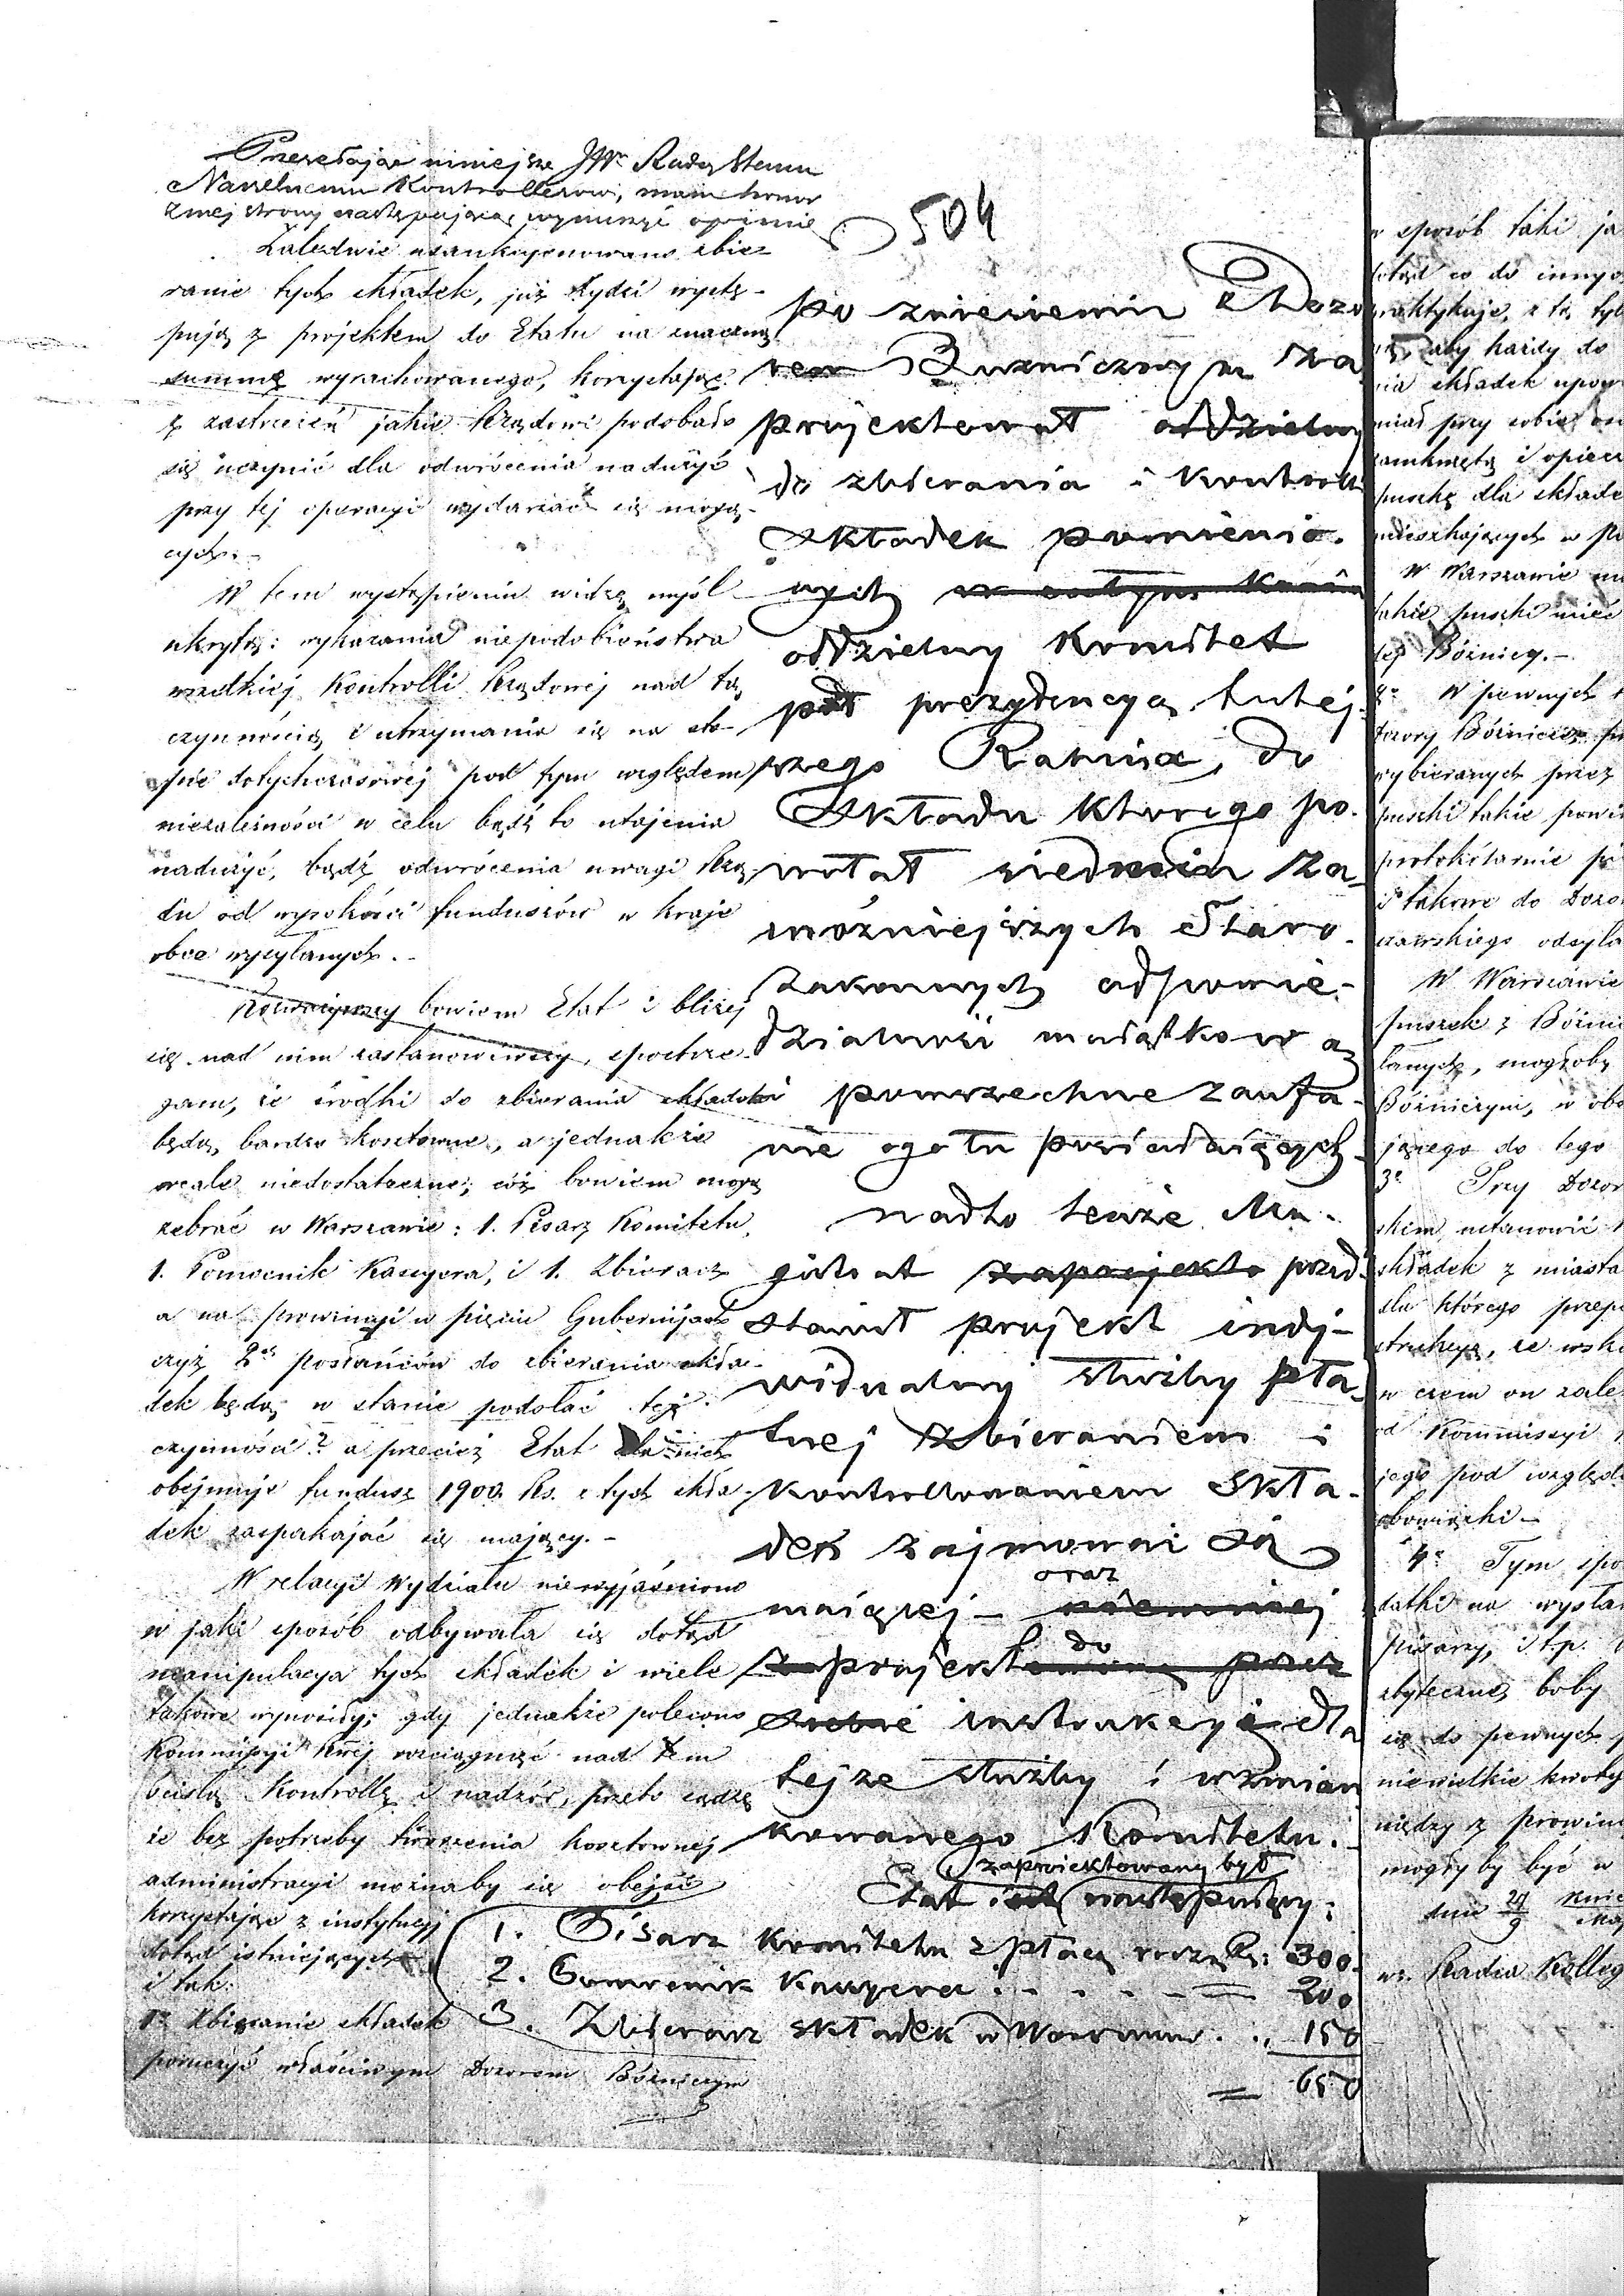 Przesyłając niniejsze JWmu Radcy Stanu
Naczelnemu Kontrollerowi, mam honor
z mej strony następującą wynurzyć opinię
Zaledwie usankcyonowano zbie-
ranie tych składek, już Żydzi wystę-
pują z projektem do Etatu na znaczną
summę wyrachowanego, korzystając
z zastrzeżeń jakie Rządowi podobało
się uczynić dla odwrócenia nadużyć
przy tej operacyi wydarzać się mogą-
cych.-
W tem wystąpieniu widzę myśl
ukrytą: wykazania niepodobieństwa
wszelkiej Kontrolli Rządowej nad tą
czynnością i utrzymania się na sto-
pie dotychczasowej pod tym względem
niezależności w celu bądź to utajenia
nadużyć, bądź odwrócenia uwagi Rzą-
du od wysokości funduszów w kraje
obce wysyłanych.-
Rozważywszy bowiem Etat i bliżej
się nad nim zastanowiwszy, spostrze-
gam, że środki do zbierania składek
będą bardzo kosztowne, a jednakże
wcale niedostateczne; cóż bowiem mogą
zebrać w Warszawie: 1. Pisarz Komitetu,
1. Pomocnik Kassyera, i 1. Zbieracz
a na prowincyi w pięciu Gubernijach
czyż 2ch posłańców do zbierania skła-
dek będą w stanie podołać tej
czynności? a przecież Etat dla nich
obejmuje fundusz 1900 Rs. z tych skła-
dek zaspakajać się mający.-
W relacyi Wydziału nie wyjaśniono
w jaki sposób odbywała się dotąd
manipulacya tych składek i wiele
takowe wynosiły; gdy jednakże polecono
Kommissyi Rzej rozciągnąć nad tem
ścisłą Kontrollę i nadzór, przeto sądzę
że bez potrzeby tworzenia kosztownej
administracyi możnaby się obejść
korzystając z instytucyj
dotąd istniejących
i tak:
1o Zbieranie składek
poruczyć właściwym Dozorom Bóżniczym
504
po zniesieniu z Dozo
rem Buzniczym za
projektował oddzielny
do zbierania i kontroli
składek pomienio-
nych w całym Kraju
oddzielny Komitet
pod prezydencyą tutej-
szego Rabina, do
składu którego po-
wołał siedmiu za-
możniejszych Staro-
zakonnych odpowie-
dzialność majątkową
i powszechne zaufa-
nie ogółu posiadaiących
nadto tenże Ma-
gistrat zaprojekto przed-
stawił projekt indy-
widualny służby pła-
tnej zbieraniem i
kontrollowaniem skła-
dek zajmować się
oraz
maiącej - niemniej
do
zaprojektowaną przez
siebie instrukcyi dla
tejże służby i wzmian
kowanego Komitetu.
zaproiektowany był
Etat iest następuiący:
1. Pisarz Komitetu z płacą rocz. Rs: 300.
2. Pomocnik Kassyera . . . . = 200
3. Zbieracz składek w Warszawie . . „ 150
= 650
w sposób taki ja
dotąd co do innyc
praktykuje, z tą tyl
aby każdy do
nia składek upow
miał przy sobie
zamkniętą i opiecz
puszkę dla składa
mieszkających w
W Warszawie
takie puszki mieć
tej Bóżnicy.-
2o W pewnych
Dozory Bóżnicze
wybieranych przez
puszki takie powin
protokólarnie
i takowe do Dozo
szawskiego odsyła
W Warszawie
puszek z Bóżni
łanych, mogłoby
Bóżniczym, w obe
jącego do tego
3o Przy Dozor
skim, ustanowić
składek z miasta
dla którego przepi
strukcyą, ze wska
w czem on zależ
od Kommissyi
jego pod względ
obowiązki -
4o Tym spo
datki na wysłań
pisarzy, i t.p.
zbyteczne, boby
się do pewnych
niewielkie kwoty
niędzy z prowinc
mogłyby być w
dnia 27/9
Radca Kolleg